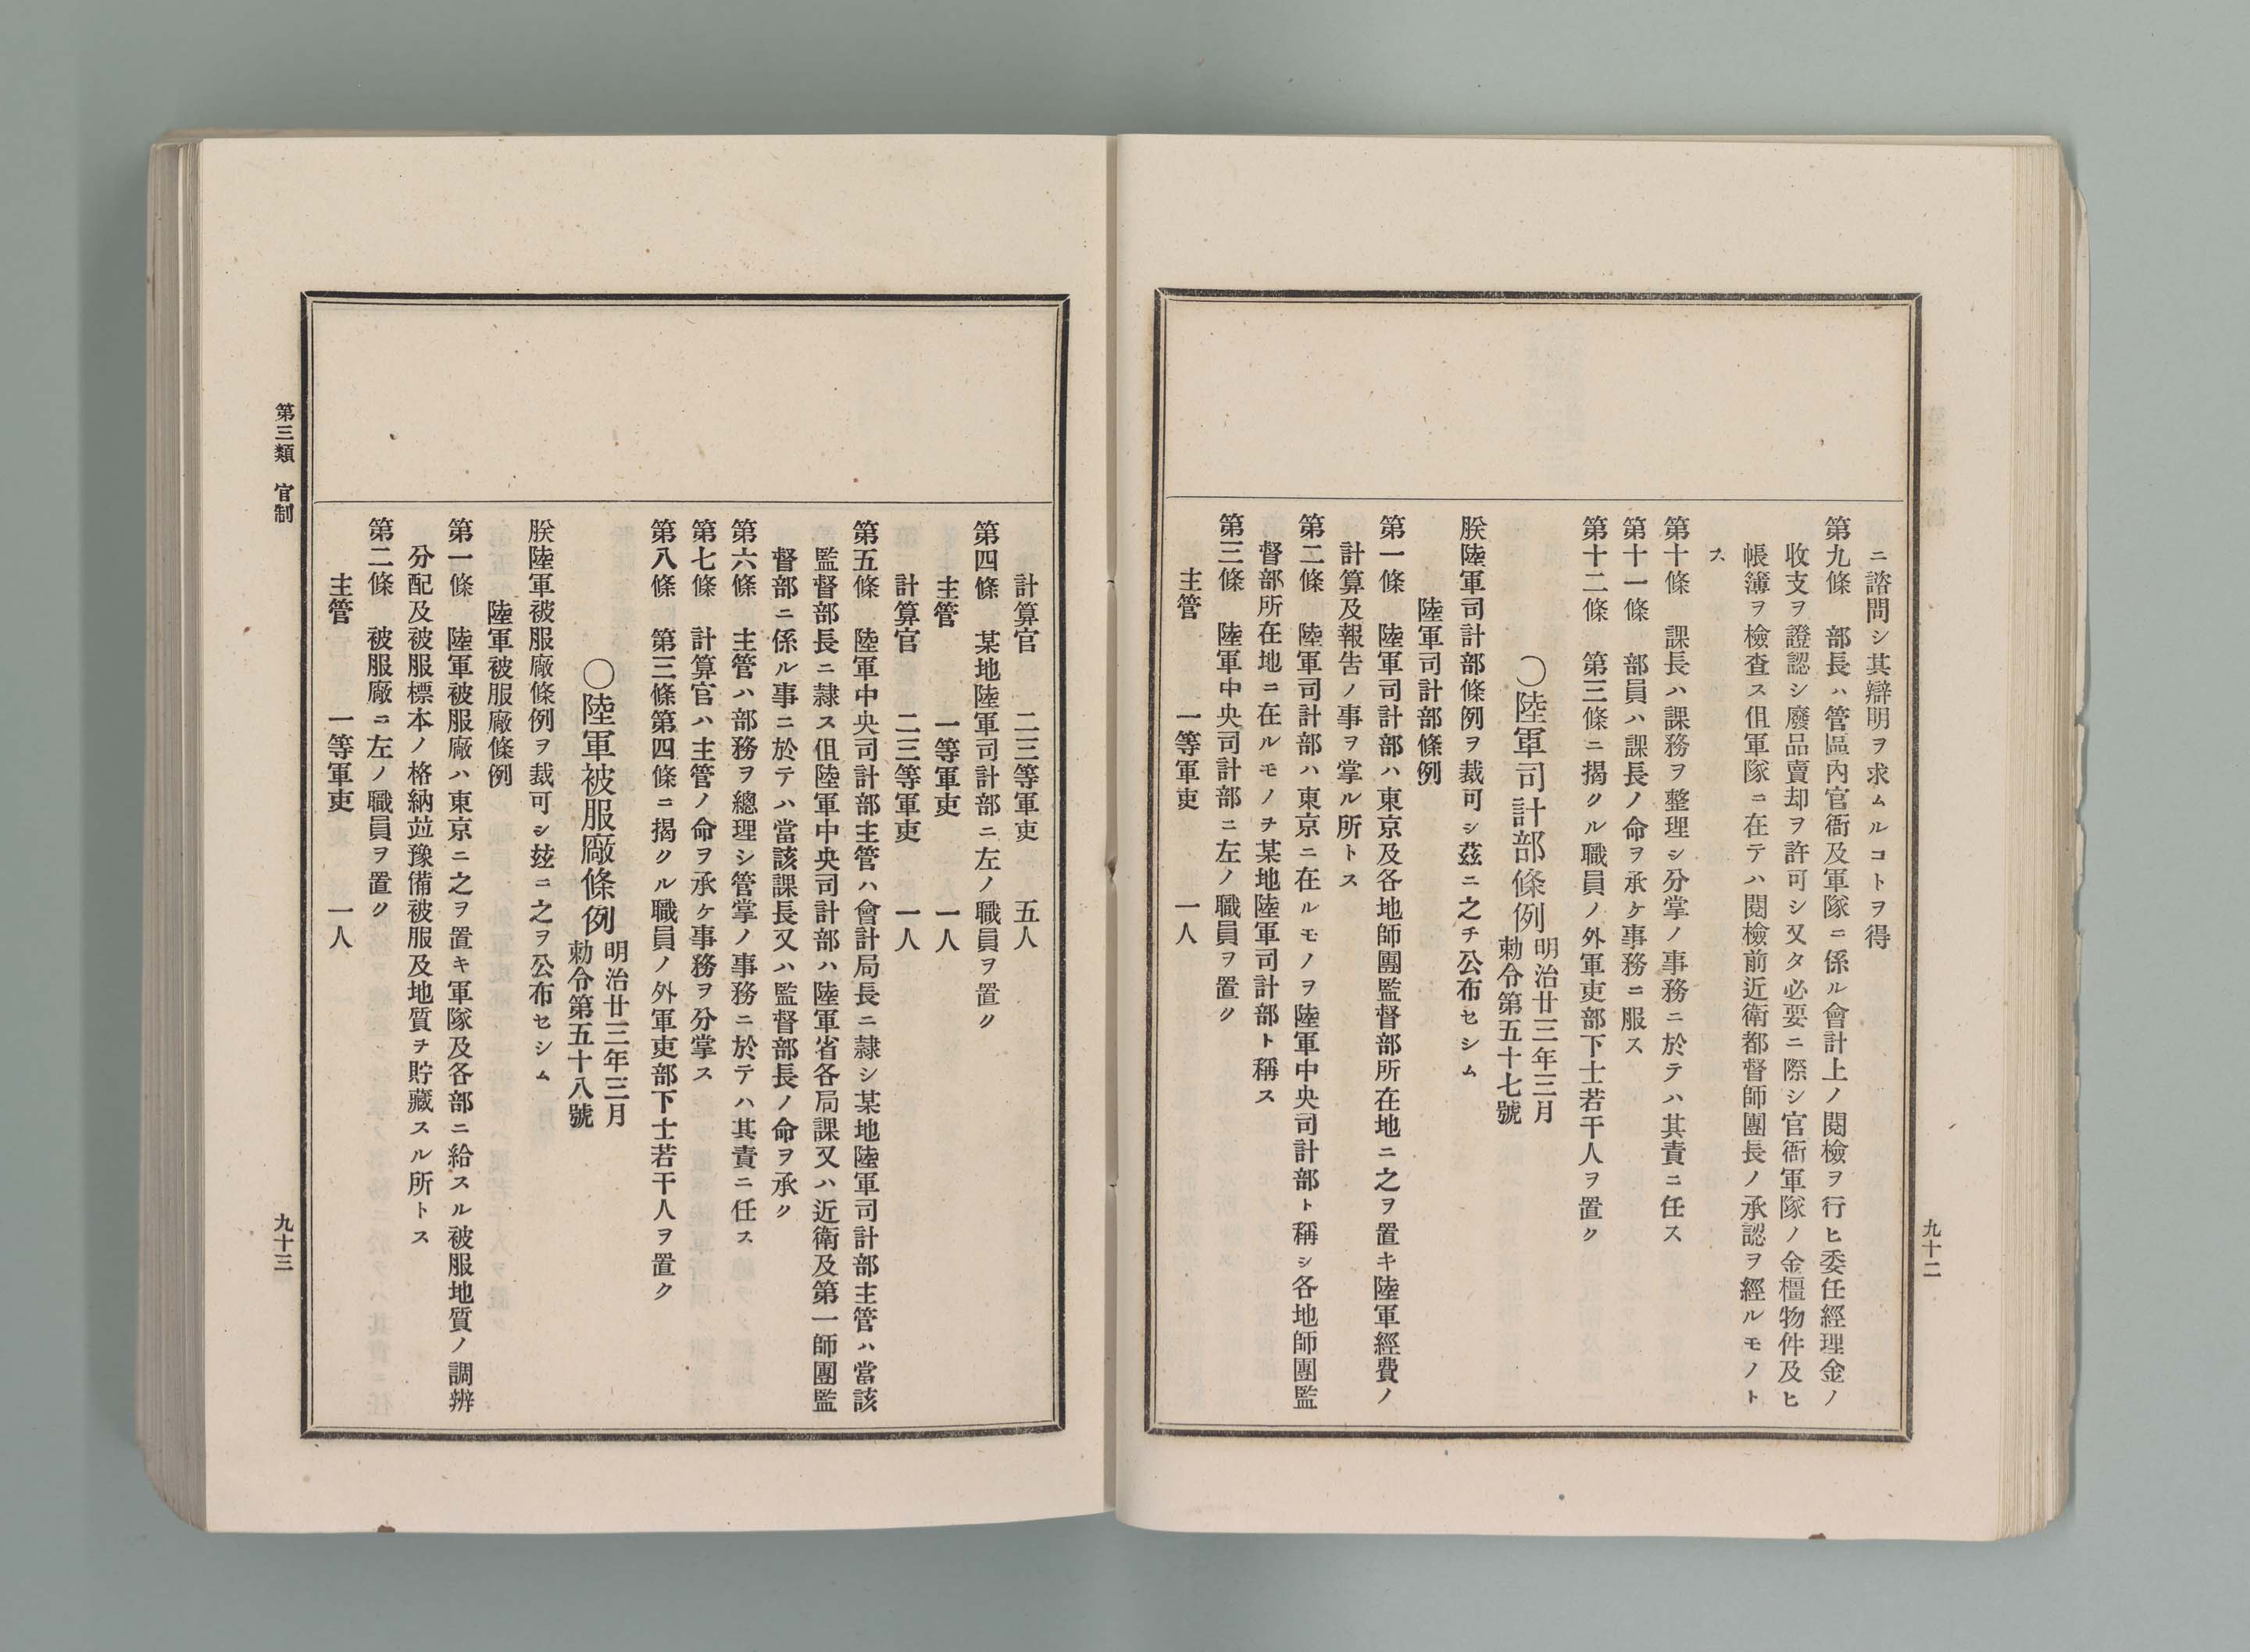 九十二
ニ諮問シ其辯明ヲ求ムルコトヲ得
第九條　部長ハ管區內官衙及軍隊ニ係ル會計上ノ閱檢ヲ行ヒ委任經理金ノ
收支ヲ證認シ廢品賣却ヲ許可シ又タ必要ニ際シ官衙軍隊ノ金櫃物件及ヒ
帳簿ヲ檢查ス伹軍隊ニ在テハ閱檢前近衛都督師團長ノ承認ヲ經ルモノト
ス
第十條　課長ハ課務ヲ整理シ分掌ノ事務ニ於テハ其責ニ任ス
第十一條　部員ハ課長ノ命ヲ承ケ事務ニ服ス
第十二條　第三條ニ揭クル職員ノ外軍吏部下士若干人ヲ置ク
〇陸軍司計部條例
明治廿三年三月
勅令第五十七號
朕陸軍司計部條例ヲ裁可シ茲ニ之チ公布セシム
陸軍司計部條例
第一條　陸軍司計部ハ東京及各地師團監督部所在地ニ之ヲ置キ陸軍經費ノ
計算及報告ノ事ヲ掌ル所トス
第二條　陸軍司計部ハ東京ニ在ルモノヲ陸軍中央司計部ト稱シ各地師團監
督部所在地ニ在ルモノチ某地陸軍司計部ト稱ス
第三條　陸軍中央司計部ニ左ノ職員ヲ置ク
主管　一等軍吏　一人
計算官　二三等軍吏　五人
第四條　某地陸軍司計部ニ左ノ職員ヲ置ク
主管　一等軍吏　一人
計算官　二三等軍吏　一人
第五條　陸軍中央司計部主管ハ會計局長ニ隷シ某地陸軍司計部主管ハ當該
監督部長ニ隷ス伹陸軍中央司計部ハ陸軍省各局課又ハ近衛及第一師團監
督部ニ係ル事ニ於テハ當該課長又ハ監督部長ノ命ヲ承ク
第六條　主管ハ部務ヲ總理シ管掌ノ事務ニ於テハ其責ニ任ス
第七條　計算官ハ主管ノ命ヲ承ケ事務ヲ分掌ス
第八條　第三條第四條ニ揭クル職員ノ外軍吏部下士若干人ヲ置ク
〇陸軍被服廠條例
明治廿三年三月
勅令第五十八號
朕陸軍被服廠條例ヲ裁可シ玆ニ之ヲ公布セシム
陸軍被服廠條例
第一條　陸軍被服廠ハ東京ニ之ヲ置キ軍隊及各部ニ給スル被服地質ノ調辨
分配及被服標本ノ格納並豫備被服及地質チ貯藏スル所トス
第二條　被服廠ニ左ノ職員ヲ置ク
主管　一等軍吏　一人
第三類　官制
九十三